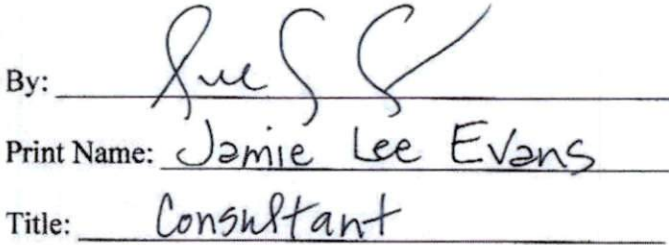 By:
Print Name: Jamie Lee Evans
Title: Consultant